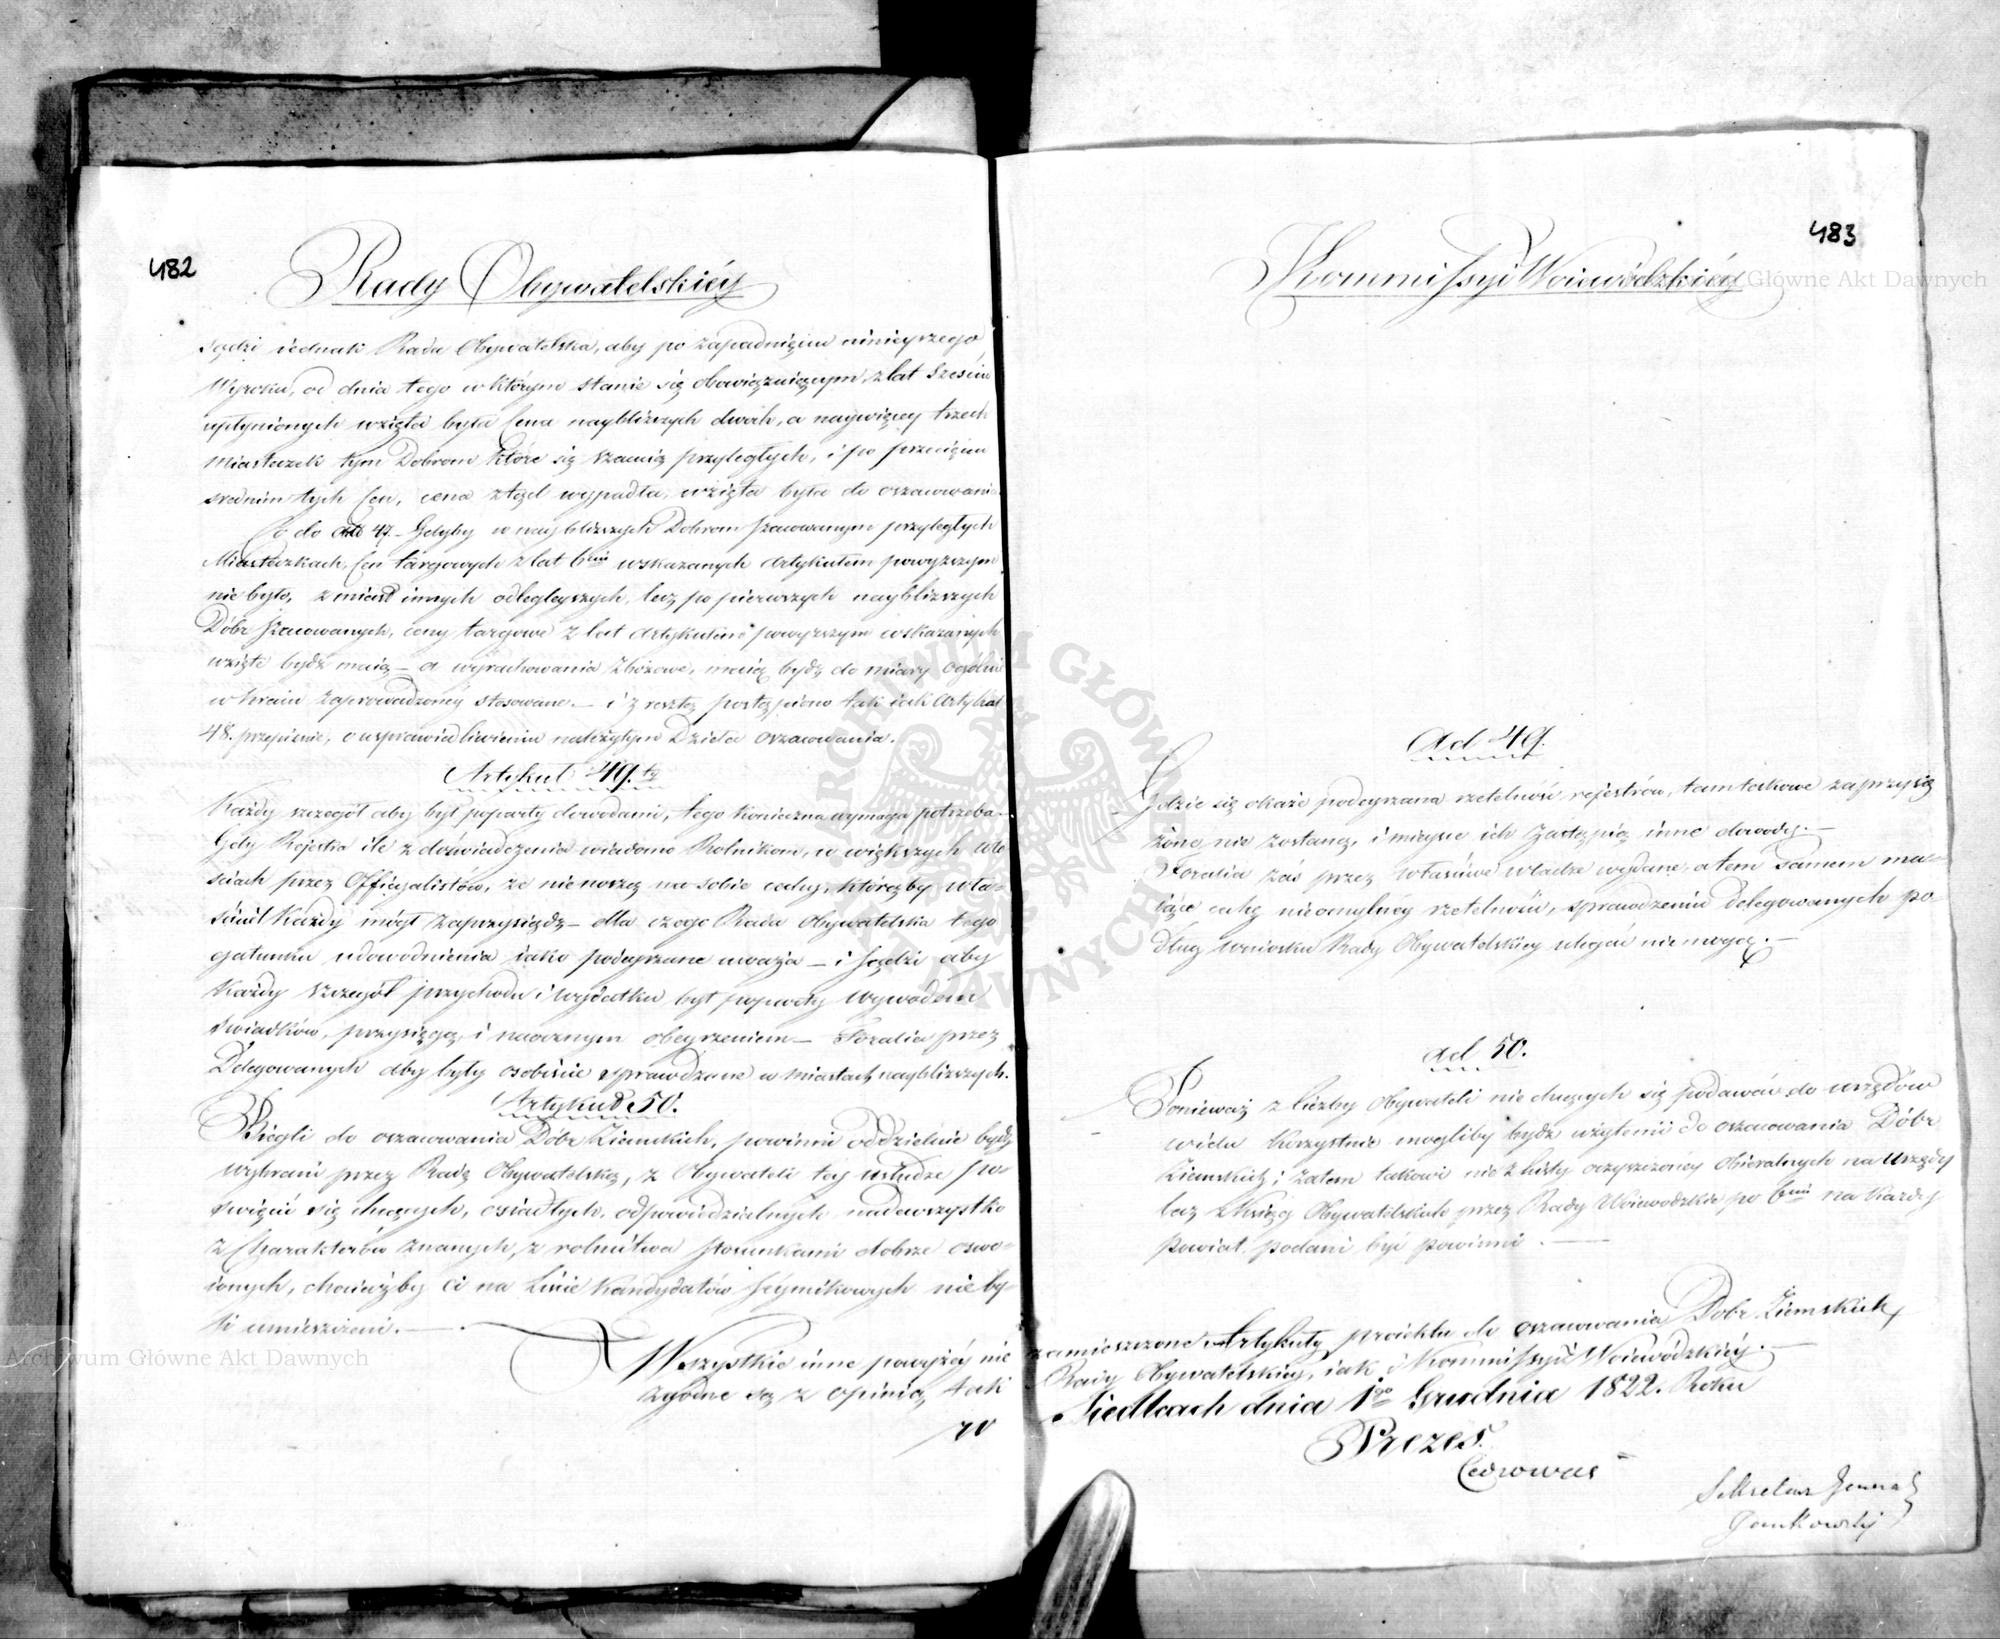 482
Rady Obywatelskiéy
sądzi iednak Rada Obywatelska, aby po zapadnięciu ninieyszego
Wyroku, od dnia tego w którym stanie się obowiązuiącym, z lat sześciu
upłynionych wzięta była Cena naybliższych dwóch, a naywięcey trzech
Miasteczek tym Dobrom które się szacuią przyległych, i po przecięciu
srednim tych Cen, cena ztąd wypadła, wzięta była do oszacowania
Co do Art 47. Gdyby w naybliższych Dobrom szacowanym przyległych
Miasteczkach, Cen targowych z lat 6ciu wskazanych Artykułem powyższym
nie było, z miast innych odległeyszych, lecz po pierwszych naybliższych
Dóbr szacowanych, ceny targowe z lat Artykułem powyższym wskazanych
wzięte bydź maią — a wyrachowania Zbożowe, maią bydź do miary ogólnie
w kraiu zaprowadzoney stosowane. — i z resztą postąpiono tak iak Artykuł
48. przepisuie, o usprawiedliwieniu należytym Dzieła oszacowania.
Artykuł 49.ty
Każdy szczegół aby był poparty dowodami, tego konieczna wymaga potrzeba.
Gdy Rejestra ile z doświadczenia wiadomo Rolnikom, w większych Wło-
ściach przez Officyalistów, że nie noszą na sobie cechy, którąby Wła-
ściciel Każdy mógł zaprzysiądz — dla czego Rada Obywatelska tego
gatunku udowodnienia iako podeyrzane uważa — i sądzi aby
Każdy szczegół przychodu i wydatku był poparty wywodem
świadków, przysięgą, i naocznym obeyrzeniem — Foralia przez
Delegowanych aby były osobiście sprawdzone w miastach naybliższych.
Artykuł 50.
Biegli do oszacowania Dóbr Ziemskich, powinni oddzielnie bydź
wybrani przez Radę Obywatelską, z Obywateli tey usłudze po-
święcić się chcących, osiadłych, odpowiedzialnych nadewszystko
z Charakterów znanych, z rolnictwa stosunkami dobrze oswo-
ionych, chociażby ci na Liście Kandydatów Seymikowych nie by-
li umieszczeni. —
Wszystkie inne powyżéy nie
zgodne są z opinią, tak
w
483
Kommissyi Woiewódzkiéy
Ad 49.
Gdzie się okaże podeyrzana rzetelność rejestrów, tam takowe zaprzysię
żone nie zostaną, i mieysce ich zastąpią inne dowody. —
Foralia zaś przez Właściwe władze wydane, a tem samem ma-
iące cechę nieomylney rzetelności, sprawdzeniu delegowanych po-
dług wniosku Rady Obywatelskiey ulegać nie mogą. —
ad 50.
Ponieważ z liczby Obywateli nie chcących się podawać do urzędów
wielu korzystnie mogliby bydź użytemi do oszacowania Dóbr
Ziemskich; zatem takowi nie z Listy oczyszczoney obieralnych na Urzędy
lecz z Księg Obywatelskich przez Rady Woiewódzkie po 6ciu na Każdy
Powiat podani być powinni. —
zamieszczone Artykuły, proiektu do oszacowania Dobr Ziemskich,
Rady Obywatelskiey, iak i Kommissyi Woiewódzkiéy. —
Siedlcach dnia 1go Grudnia 1822. Roku
Prezes.
Sekretarz General